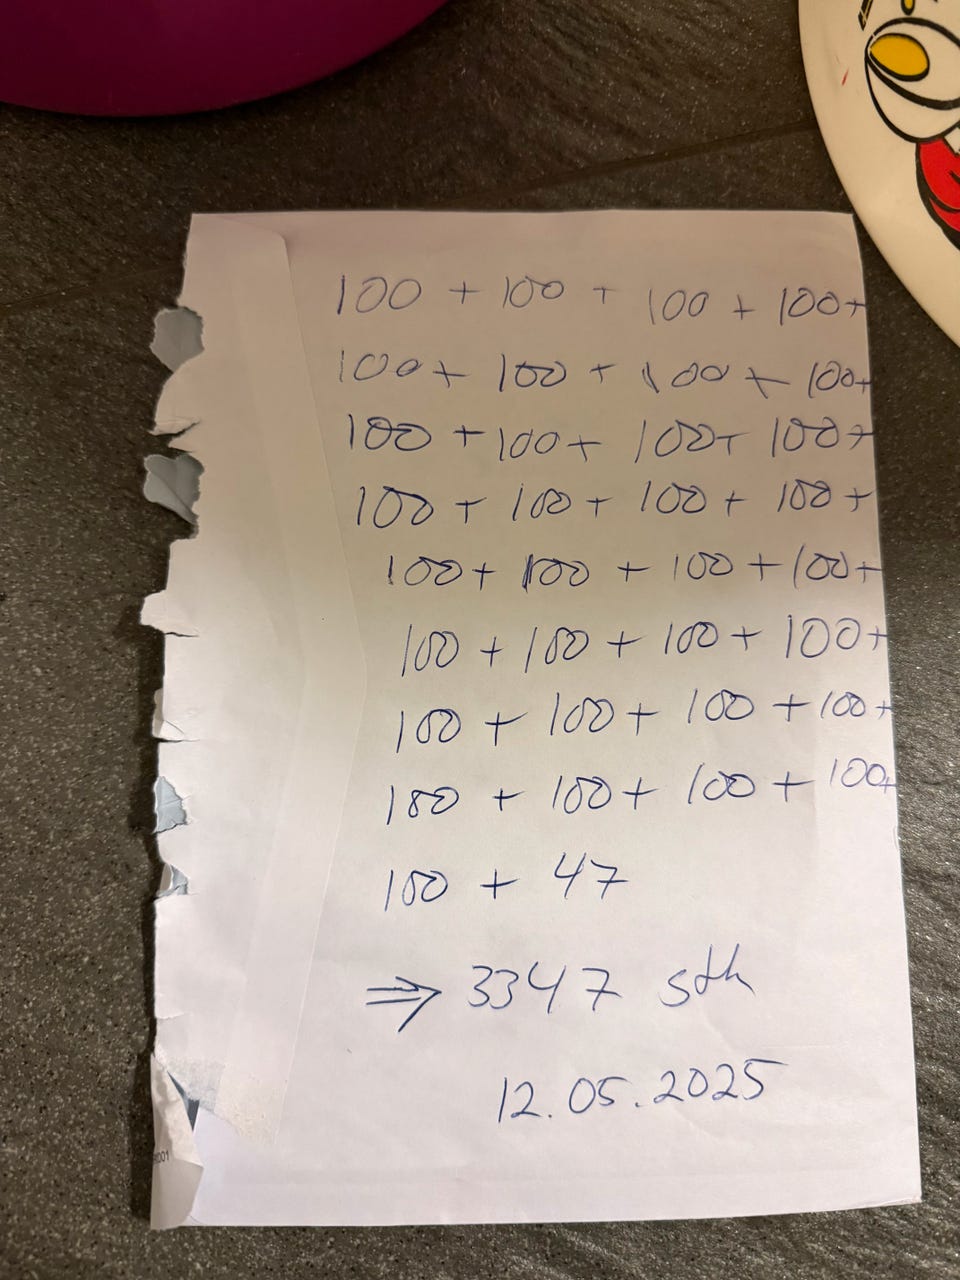 100 + 100 + 100 + 100+
100+ 100 + 100 + 100+
100 + 100+ 100+ 100+
100 + 100 + 100 + 100 +
100+ 100 + 100 + 100+
100 + 100 + 100 + 100+
100 + 100 + 100 + 100+
100 + 100 + 100 + 100+
100 + 47
⇒ 3347 stk
12.05.2025